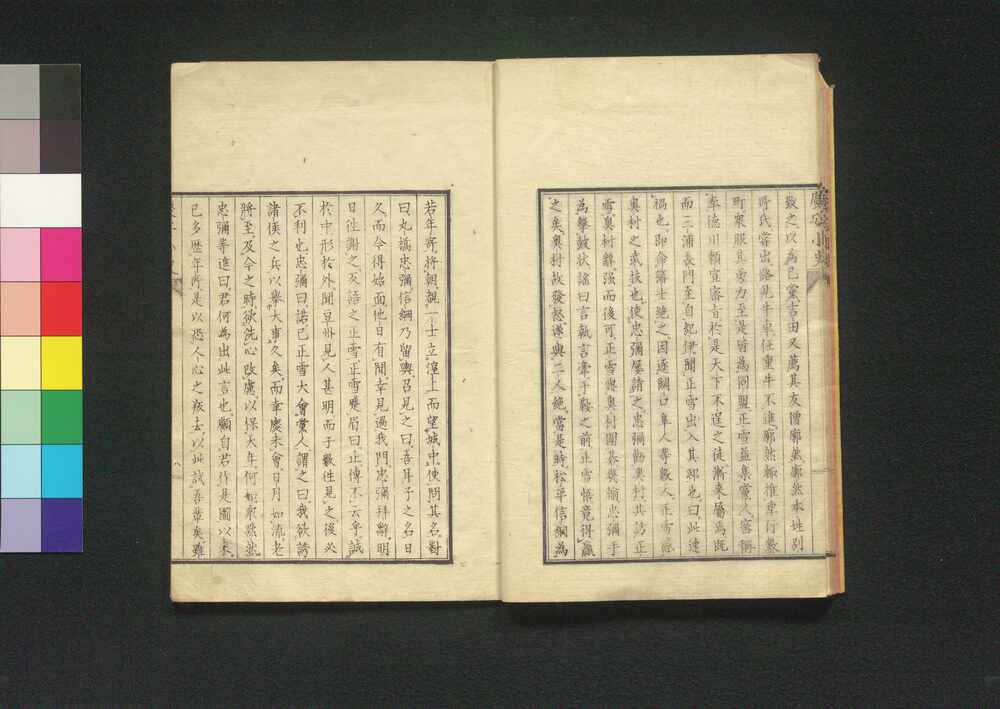 敬之以為己黨吉田又薦其友僧廓然廓然本姓別
所氏嘗出路見牛車任重牛不進廓然輒推車行數
町衆服其勇力至是皆為同盟正雪益集黨人密稱
奉德川賴宣密旨於是天下不逞之徒漸來屬焉既
而三浦長門至自紀伊聞正雪出入其邸也曰此速
禍也即命藩士絶之因逐關口隼人等數人正雪
奥村之武技也使忠彌屢請之忠彌勸奥村其訪正
雪奥村辭强而後可正雪與奥村圍碁奥村顧忠彌手
為擊鼓状謡曰言執言牽于鞍之前正雪悵竟得贏
之矣奥村故發怒遂與二人絶當是時松平信綱為
若年寄将朝覩一士立湟上而望城中使問其名對
曰丸橋忠彌信綱乃留輿召見之曰吾耳子之名日
久而今得始面他日有閒幸見過我門忠彌拜辭明
日往謝之反語之正雪正雪蹙眉曰止傳不云乎誠
於中形於外聞豆州見人甚明而子數往見之後必
不利也忠彌曰諾已正雪大會黨人謂之曰我欲誘
諸侯之兵以舉大事久矣而幸慶未會日月如流老
将至及今之時欲洗心改慮以保天年何如衆黙然
忠彌等進曰君何為出此言也願自君作是圖以来
已多歴年所是以恐人心之叛去以此試吾輩矣雖